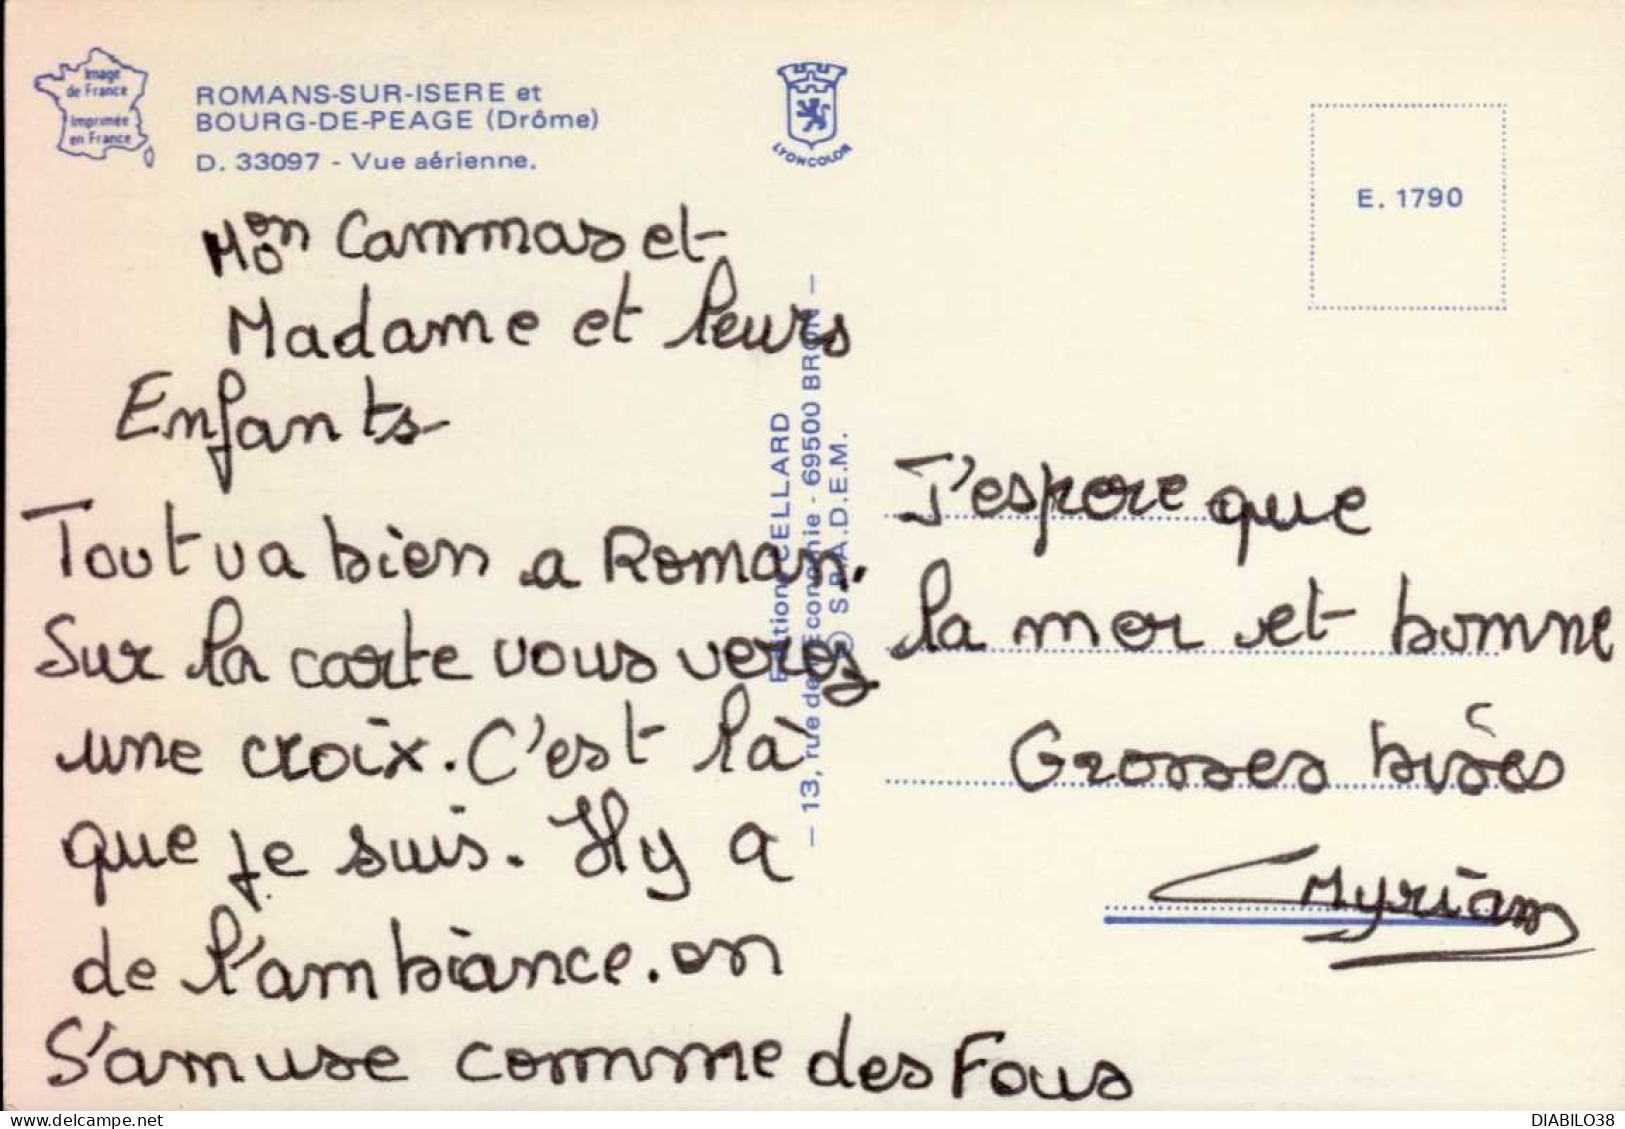 Image
de France
Imprimée
en France
ROMANS-SUR-ISERE et
BOURG-DE-PEAGE (Drôme)
D. 33097 - Vue aérienne.
LYONCOLOR
E. 1790
Mon Cammas et
Madame et leurs
Enfants
Tout va bien a Roman.
Sur la carte vous verez
une croix. C'est là
que je suis. Il y a
de l'ambiance. on
S'amuse comme des Fous
Editions CELLARD
— 13, rue de l'Economie - 69500 BRON —
© S.P.A.D.E.M.
J'espere que
la mer et bonne
Grosses bises
Myriam
DIABILO38